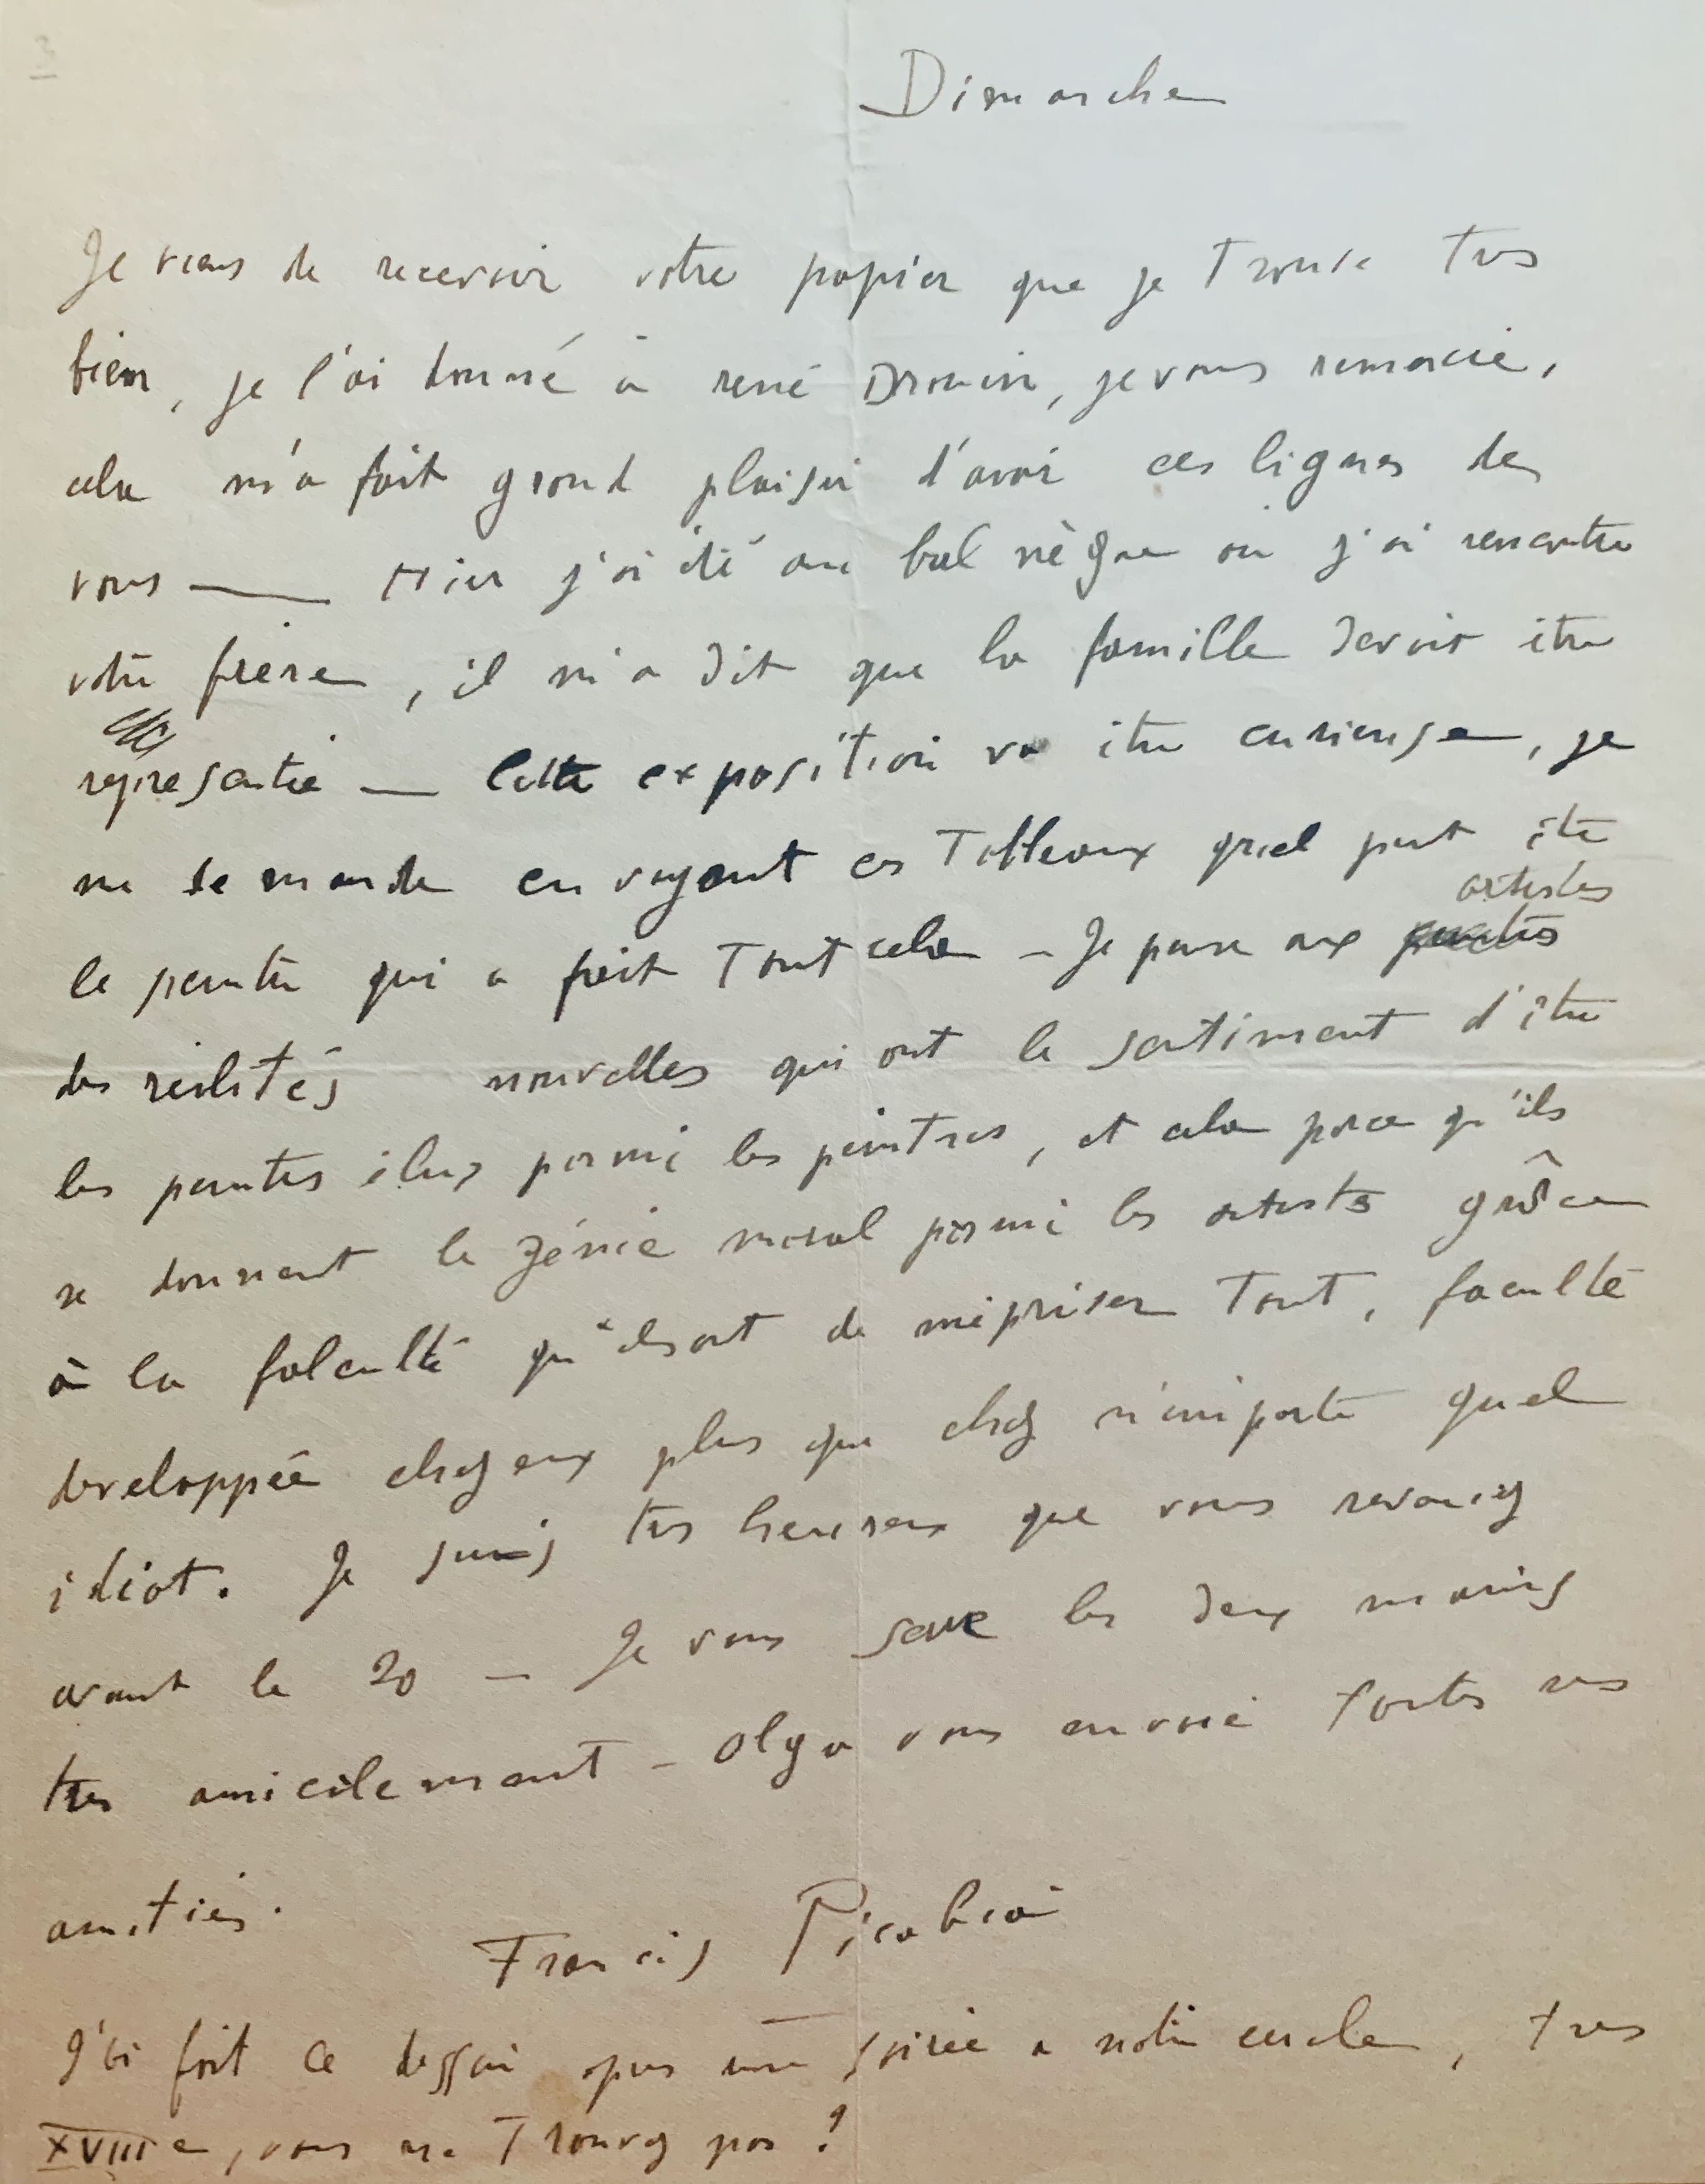 3
Dimanche
Je viens de recevoir votre papier que je trouve très
bien, je l'ai donné à rené Drouin, je vous remercie,
cela m'a fait grand plaisir d'avoir ces lignes de
vous — Hier j'ai été au bal nègre où j'ai rencontré
votre frère, il m'a dit que la famille devait être
représentée — Cette exposition va être curieuse, je
me demande en voyant ces Tableaux quel peut être
le peintre qui a fait Tout cela — Je pense aux artistes
des réalités nouvelles qui ont le sentiment d'être
les peintres élus parmi les peintres, et cela parce qu'ils
se donnent le génie moral parmi les artistes grâce
à la falculté qu'ils ont de mépriser Tout, faculté
developpée chez eux plus que chez n'importe quel
idiot. Je suis très heureux que vous reveniez
avant le 20 — Je vous serre les deux mains
très amicalement — Olga vous envoie toutes ses
amitiés.
Francis Picabia
J'ai fait ce dessin apres une soirée a notre cercle, tres
XVIIIe, vous ne Trouvez pas ?